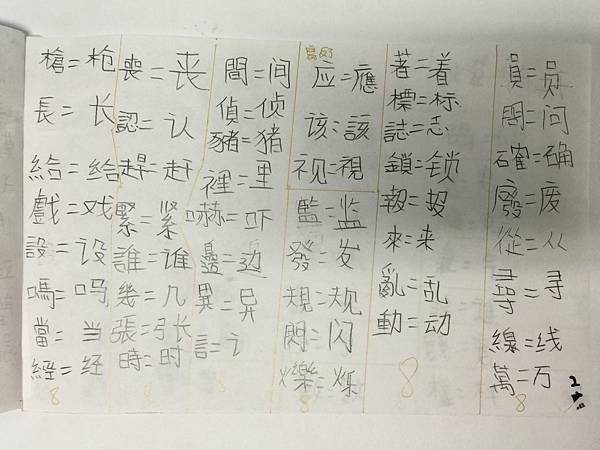 槍=枪
長=长
給=给
戲=戏
設=设
嗎=吗
當=当
經=经
8
喪=丧
認=认
趕=赶
緊=紧
誰=谁
幾=几
張=张
時=时
8
間=间
偵=侦
豬=猪
裡=里
嚇=吓
邊=边
異=异
訁=讠
寫反
应=應
该=該
视=視
監=监
發=发
規=规
閃=闪
爍=烁
8
著=着
標=标
誌=志
鎖=锁
報=报
來=来
亂=乱
動=动
8
員=员
問=问
確=确
廢=废
從=从
尋=寻
線=线
萬=万
8
2